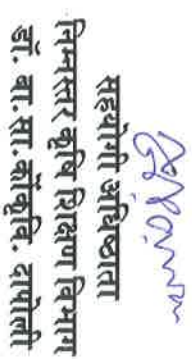 सहयोगी अधिष्ठाता
निम्नस्तर कृषि शिक्षण विभाग
डॉ. बा.सा.कोंकृवि. दापोली